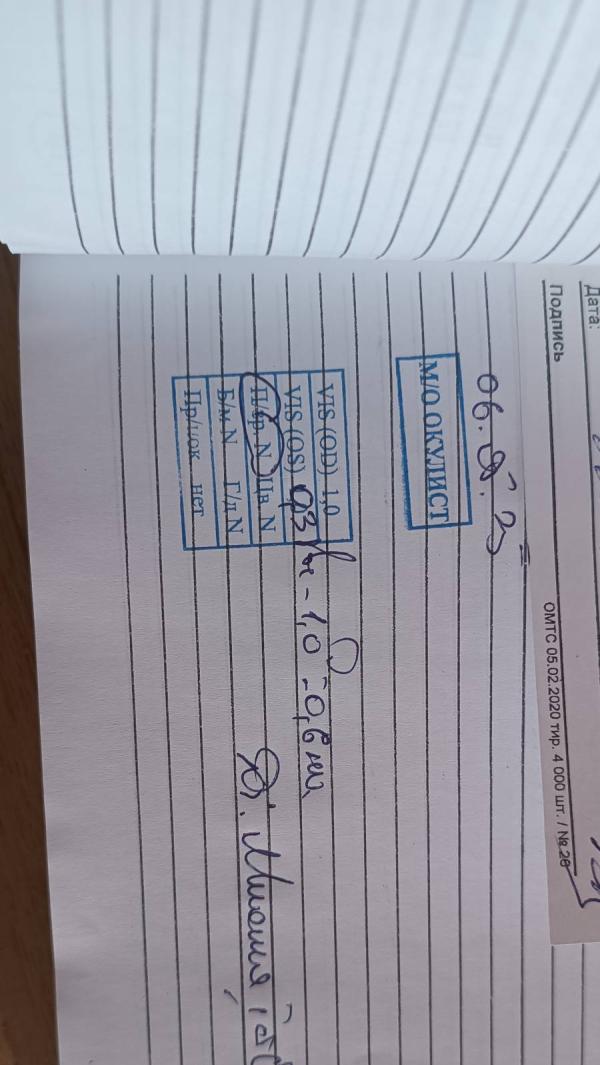 Дата:
Подпись
ОМТС 05.02.2020 тир. 4 000 шт. / № 26
М/О ОКУЛИСТ
VIS (OD) 1,0
VIS (OS) 0,3 - 1,0 = 0,6
П/зр. N Цв. N
Б/м N Г/д N
Пр/шок нет
Миопия